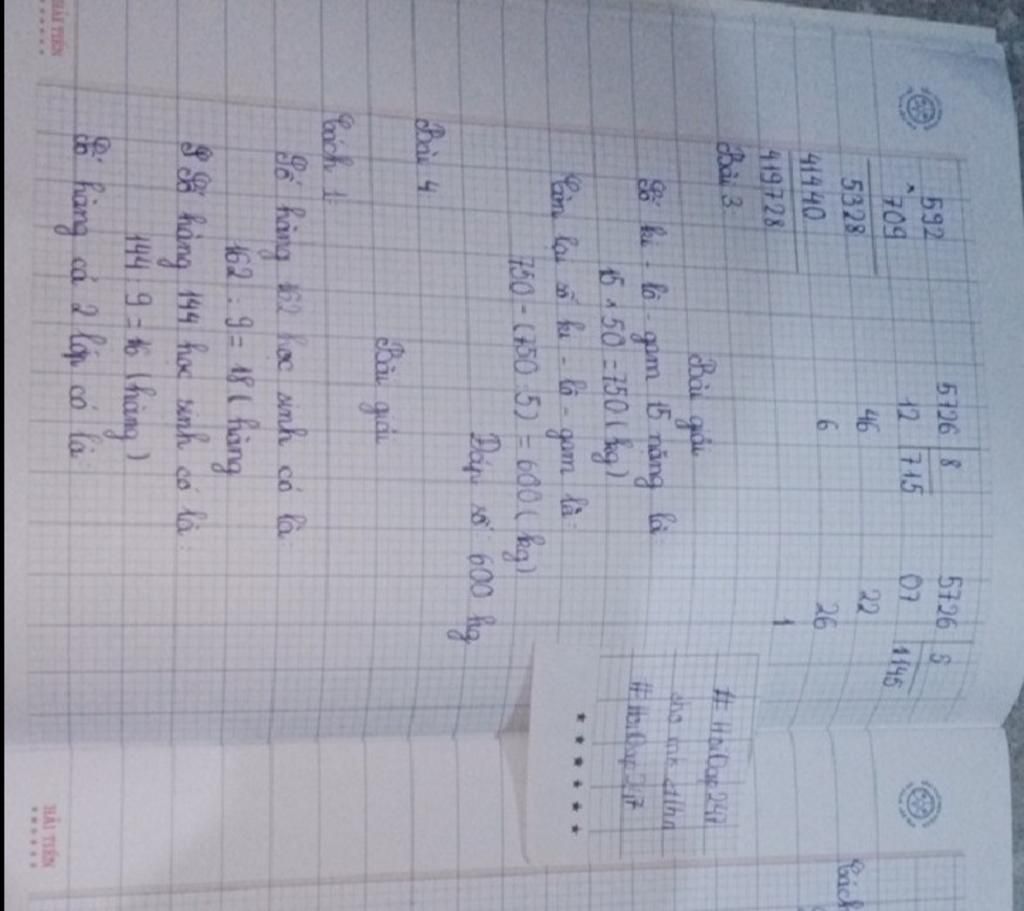 592
× 709
5328
41440
419728
5726 8
12 715
46
6
5726 5
07 1145
22
26
1
# HoiDap247
cho mk ctlhn
# HoiDap247
Bài 3
Bài giải
Số ki - lô - gam 15 năng là:
15 × 50 = 750 (kg)
Còn lại số ki - lô - gam là:
750 - (750 : 5) = 600 (kg)
Đáp số 600 kg
Bài 4
Bài giải
Cách 1:
Số hàng 162 học sinh có là
162 : 9 = 18 (hàng
Số hàng 144 học sinh có là:
144 : 9 = 16 (hàng)
Số hàng cả 2 lớp có là:
Cách
HẢI TIẾN
HẢI TIẾN